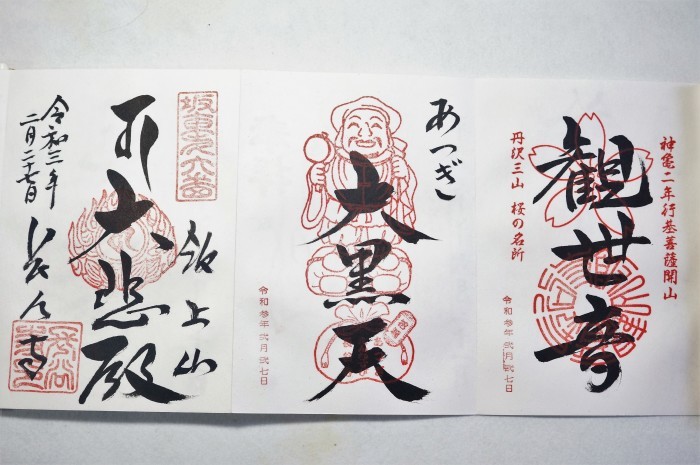 神亀二年行基菩薩開山
観世音
丹沢三山 桜の名所
令和参年 弐月弐七日
あつぎ
大黒天
令和参年 弐月弐七日
坂東第六番
飯上山
大悲殿
令和三年
二月二十七日
長谷寺